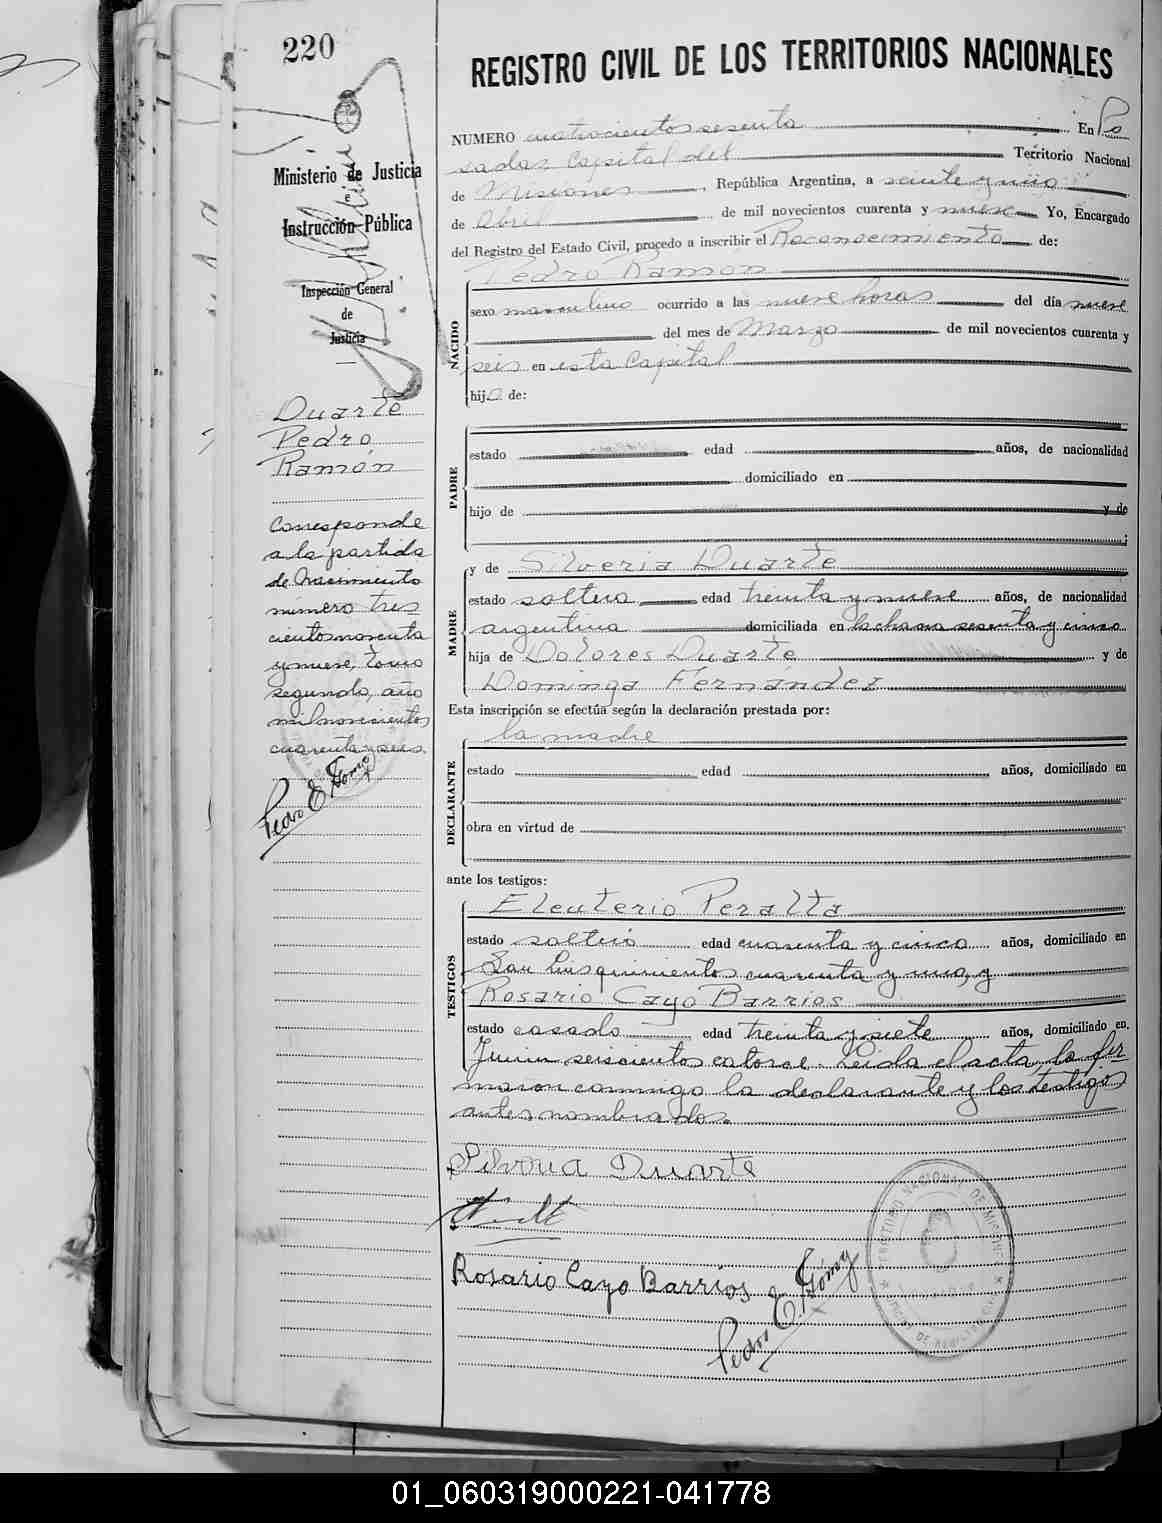 220
REGISTRO CIVIL DE LOS TERRITORIOS NACIONALES
Ministerio de Justicia
e
Instrucción Pública
Inspección General
de
Justicia
Duarte
Pedro
Ramón
Corresponde
a la partida
de Nacimiento
número tres
cientos noventa
y nueve, tomo
segundo, año
mil novecientos
cuarenta y seis.
Pedro E. Gómez
NUMERO cuatrocientos sesenta En Po
sadas, Capital del Territorio Nacional
de Misiones, República Argentina, a veinte y uno
de Abril de mil novecientos cuarenta y nueve Yo, Encargado
del Registro del Estado Civil, procedo a inscribir el Reconocimiento de:
Pedro Ramón
NACIDO
sexo masculino ocurrido a las nueve horas del día nueve
del mes de Marzo de mil novecientos cuarenta y
seis en esta Capital
hijo de:
PADRE
estado edad años, de nacionalidad
domiciliado en
hijo de y de
;
MADRE
y de Silveria Duarte
estado soltera edad treinta y nueve años, de nacionalidad
argentina domiciliada en la chacra sesenta y cinco
hija de Dolores Duarte y de
Dominga Fernández
Esta inscripción se efectúa según la declaración prestada por:
la madre
DECLARANTE
estado edad años, domiciliado en
obra en virtud de
ante los testigos:
TESTIGOS
Eleuterio Peralta
estado soltero edad cuarenta y cinco años, domiciliado en
San Luis quinientos cuarenta y uno, y
Rosario Cayo Barrios
estado casado edad treinta y siete años, domiciliado en
Junin seiscientos catorce. Leida el acta, la fir
maron conmigo la declarante y los testigos
antes nombrados.
Silveria Duarte
Rosario Cayo Barrios
Pedro E. Gómez
TERRITORIO NACIONAL DE MISIONES
01_060319000221-041778